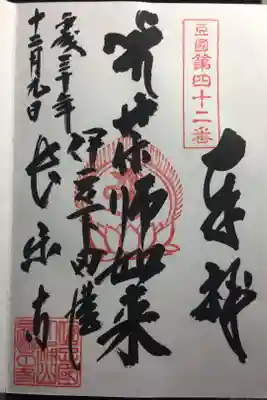 奉拝
豆國第四十二番
薬師如来
伊豆下田港
平成三十年
十二月九日
長楽寺